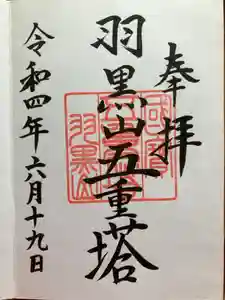 奉拝
羽黒山五重塔
令和四年六月十九日